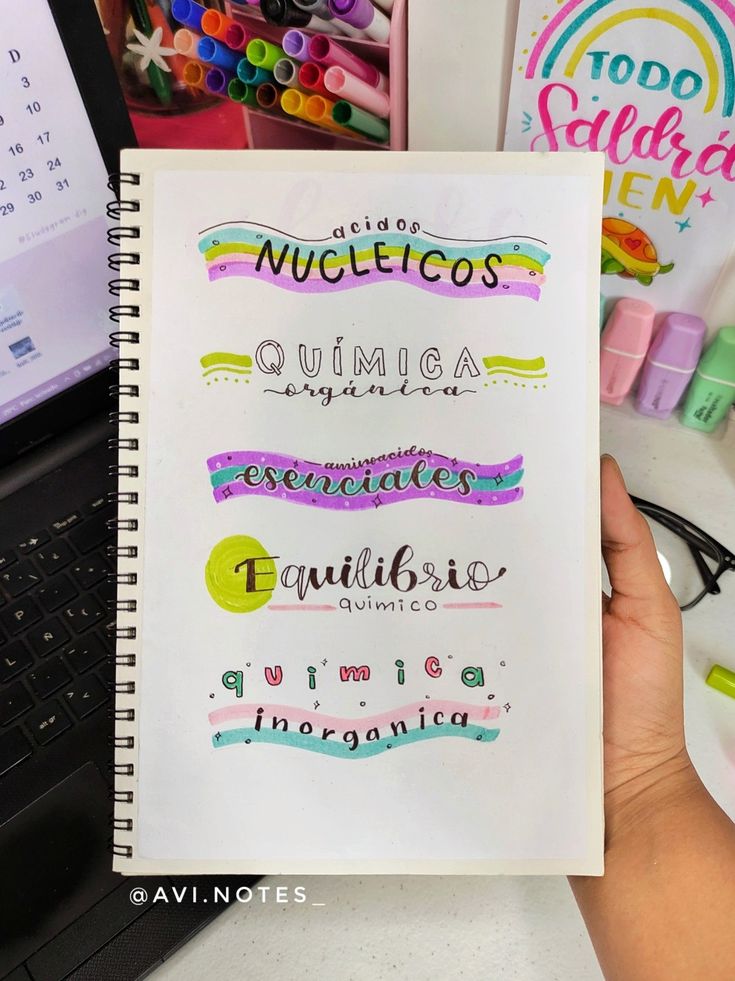 D
3
10
16 17
22 23 24
29 30 31
TODO
Saldrá
acidos
NUCLEICOS
QUÍMICA
orgánica
aminoacidos
esenciales
Equilibrio
químico
quimica
inorganica
alt gr
ctrl
@AVI.NOTES_